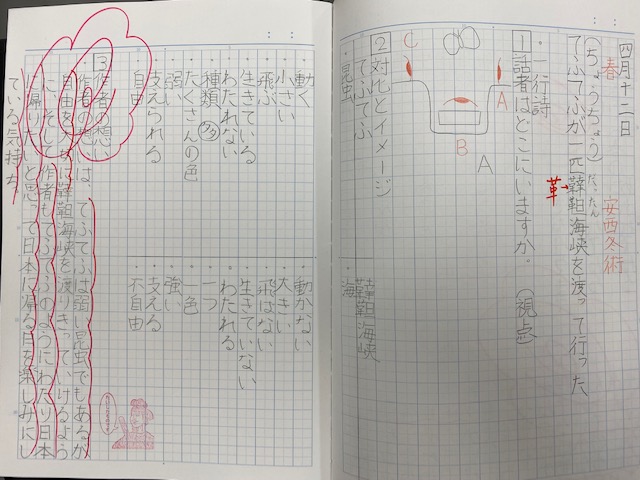 四月十二日
春 安西冬衛
(ちょうちょう) だったん
てふてふが一匹韃靼海峡を渡って行った
革→
・一行詩
1 話者はどこにいますか。(視点)
C
A
B
A
2 対比とイメージ
てふてふ
韃靼海峡
・昆虫
・海
・動く
・動かない
・小さい
・大きい
・飛ぶ
・飛ばない
・生きている
・生きていない
・わたれない
・わたれる
・種類
・一つ
・たくさんの色
・一色
・弱い
・強い
・支えられる
・支える
・自由
・不自由
3 作者の想い
作者の想いは、てふてふは弱い昆虫でもあるが
自由を大切に韃靼海峡を渡りきっていけるよう
に、そして作者もてふてふのようにわたり日本
に帰りたいと思って日本に帰る日を楽しみにし
ている気持ち。